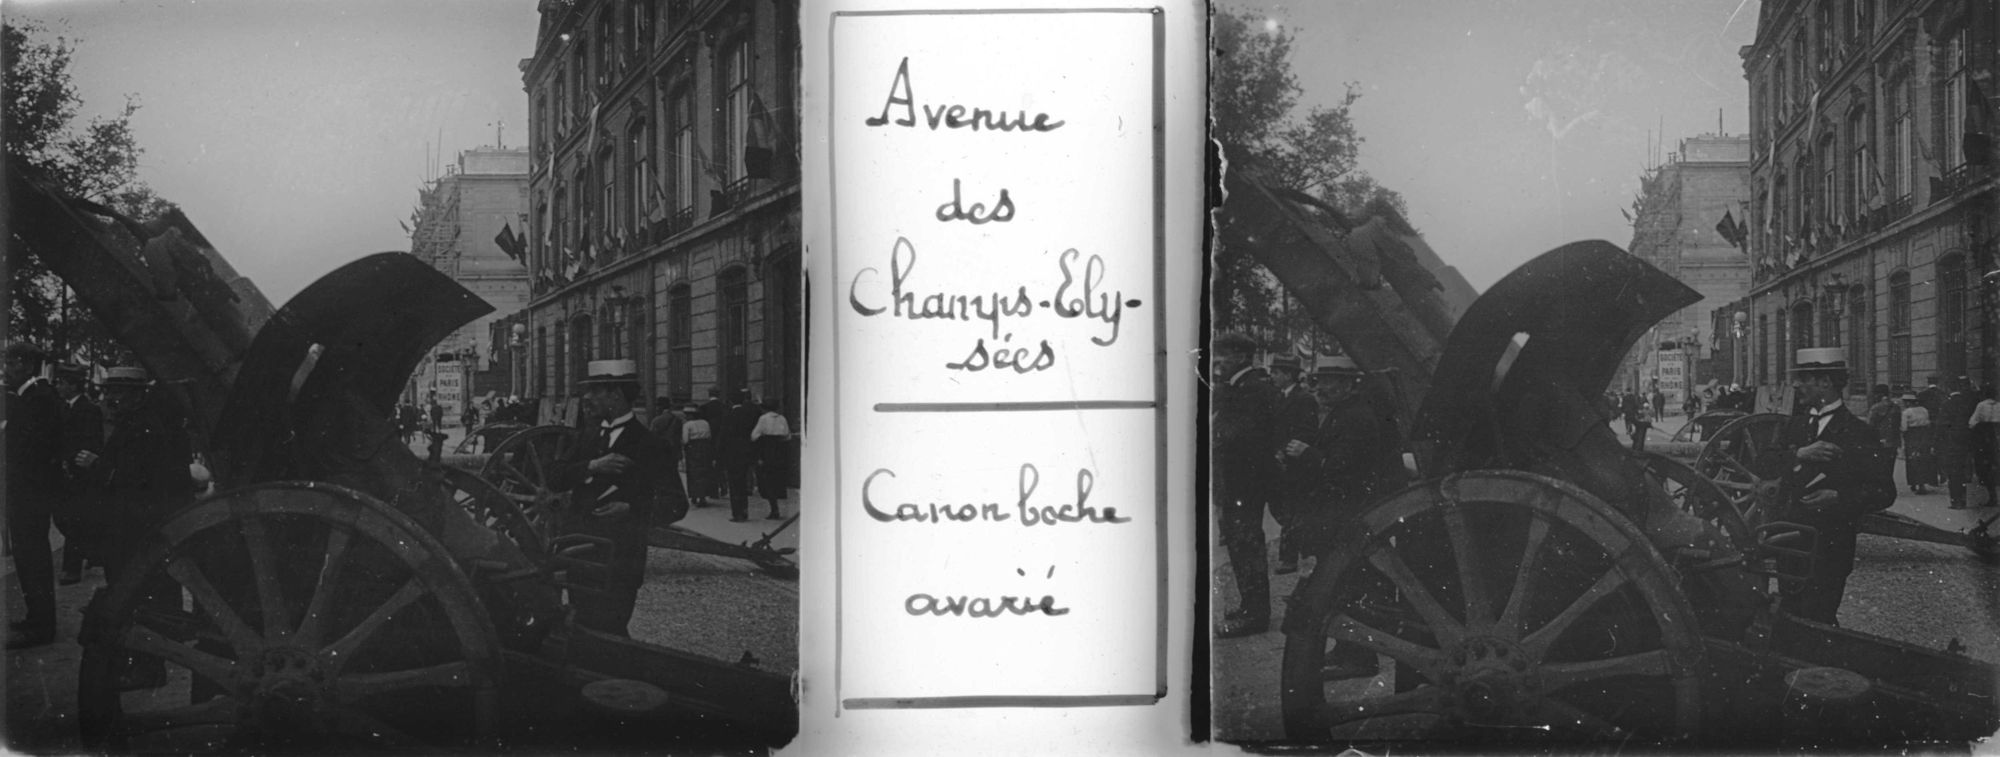 Avenue
des
Champs-Ely-
sées
Canon boche
avarié
SOCIÉTÉ
PARIS
RHÔNE
SOCIÉTÉ
PARIS
RHÔNE